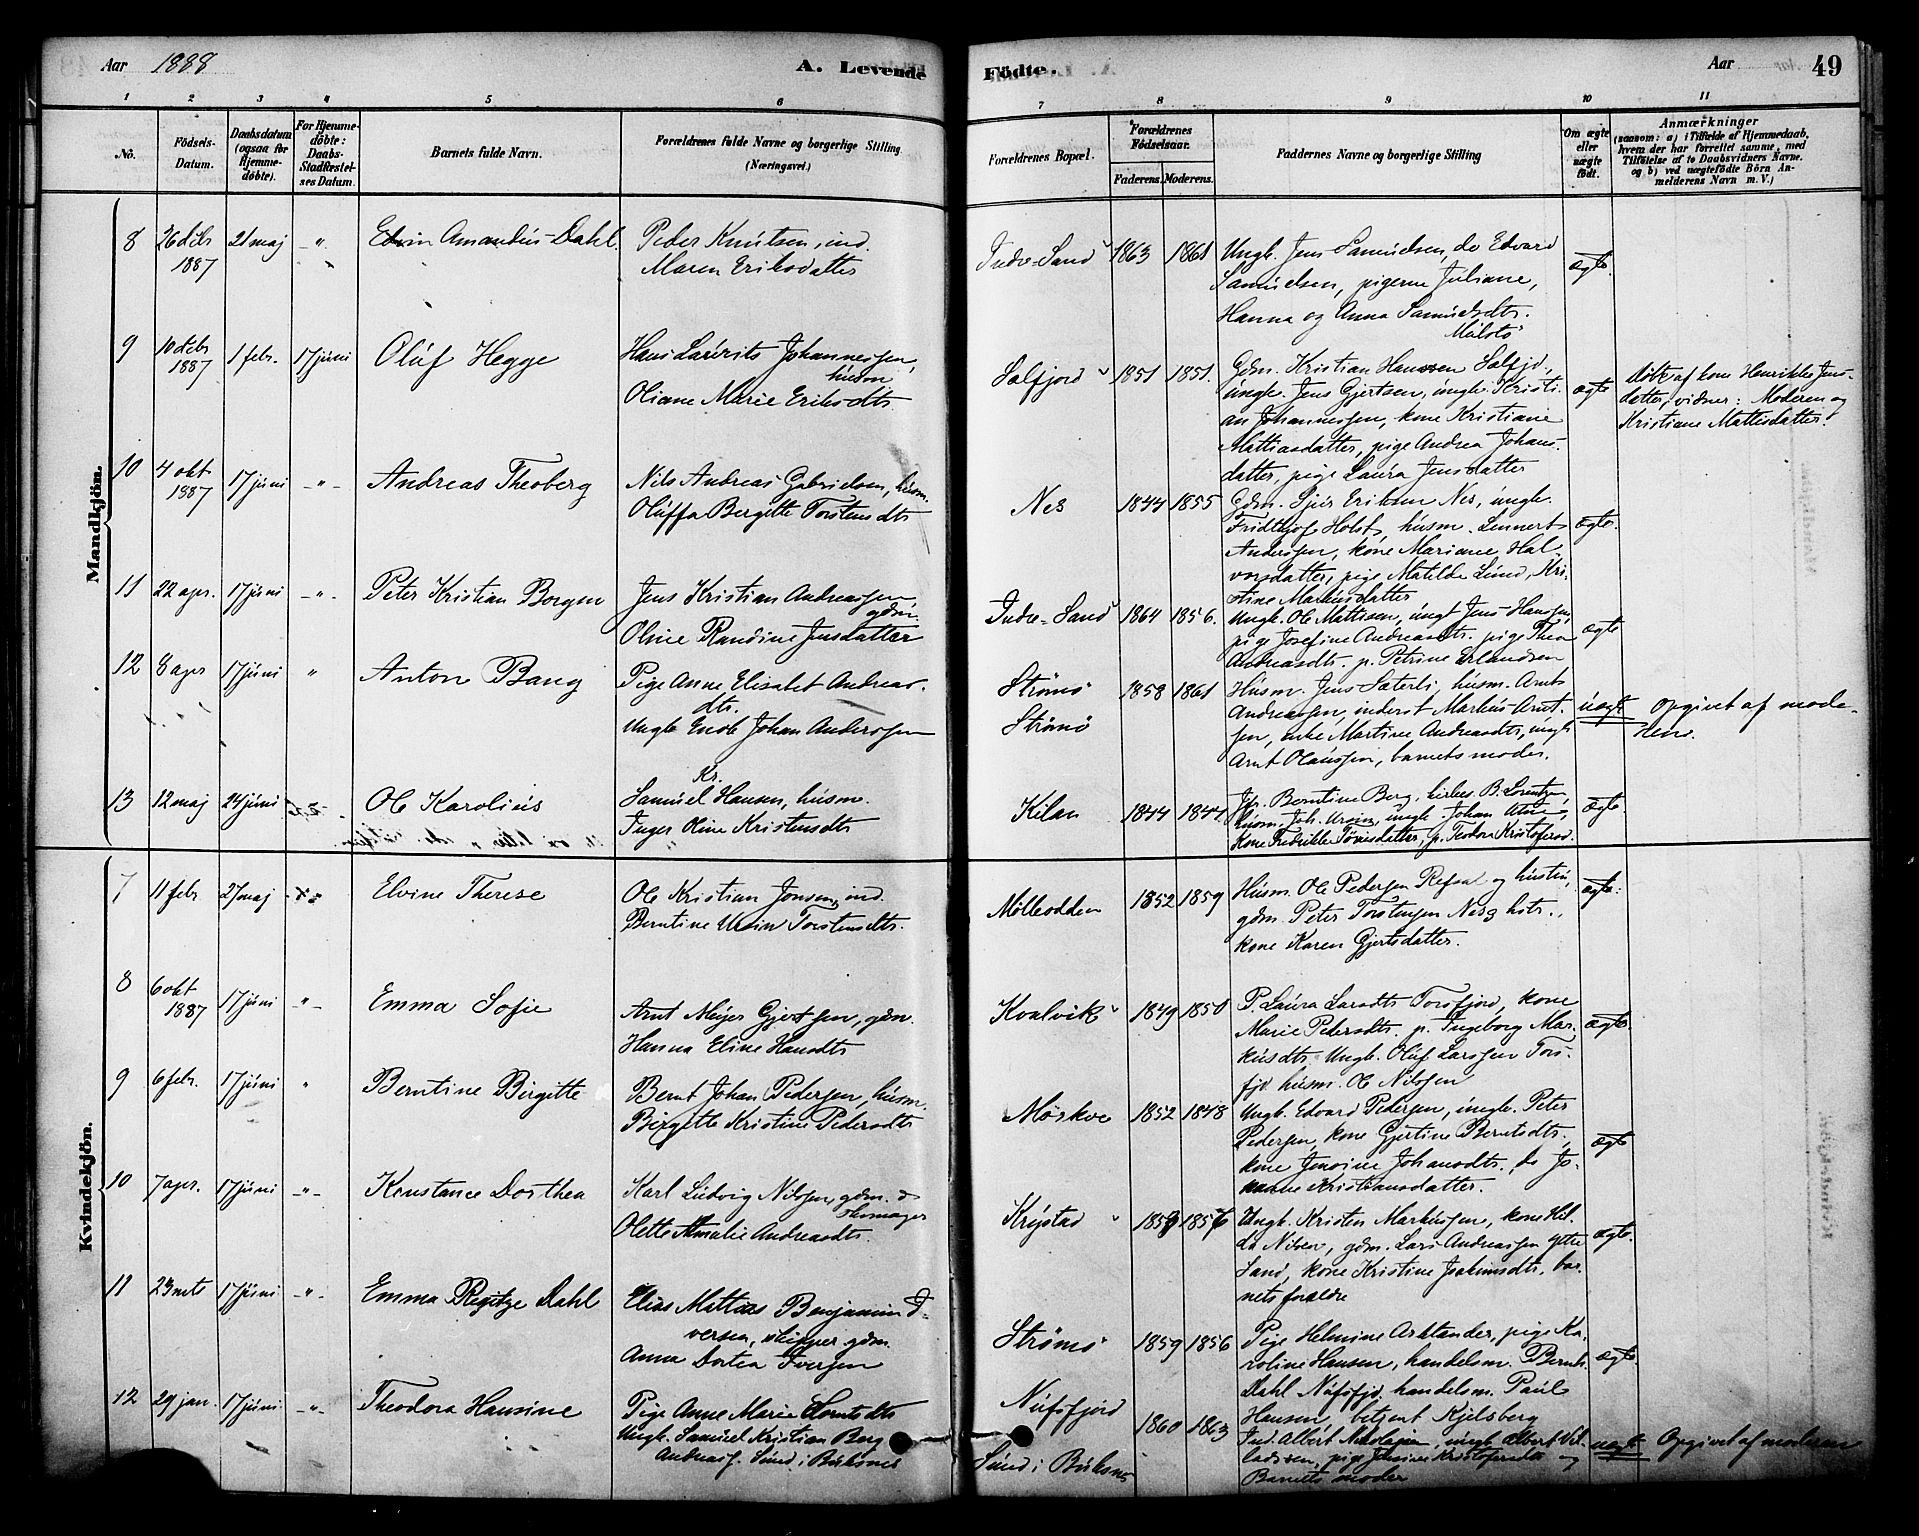 Aar 1888
A. Levende
Födte.
Aar
49
1 2 3 4 5 6 7 8 9 10 11
No.
Födsels-
Datum.
Daabsdatum
(ogsaa for
Hjemme-
döbte).
For Hjemme-
döbte:
Daabs-
Stadfæstel-
ses Datum.
Barnets fulde Navn.
Forældrenes fulde Navne og borgerlige Stilling
(Næringsvei.)
Forældrenes Bopæl.
Forældrenes
Födselsaar.
Faderens. Moderens.
Faddernes Navne og borgerlige Stilling
Om ægte
eller
uægte
födt.
Anmærkninger
(saasom: a) i Tilfælde af Hjemmedaab,
hvem der har forrettet samme, med
Tilföielse af to Daabsvidners Navne.
og b) ved uægtefödte Börn An-
melderens Navn m. V.)
Mandkjön.
8 26 debr 1887 21 maj -"- Edvin Amandus Dahl.
Peder Knutsen, ind.
Maren Eriksdatter
Indre-Sand 1863 1861
Ungk. Jens Samuelsen, do Edvard
Samuelsen, pigerne Juliane,
Hanna og Anna Samuelsdtr.
ægte
9 10 debr 1887 1 febr. 17 juni Oluf Hegge
Hans Laurits Johannessen,
husm
Oliane Marie Eriksdtr
Selfjord 1851 1851.
Gdm. Kristian Hanssen Selfjd,
ungk. Jens Gjertsen, ungk. Kristi-
an Johannessen, kone Kristiane
Mattiasdatter, pige Andrea Johans-
datter, pige Laura Jensdatter
ægte
døbt af kone Henrikke Jens-
datter, vidner: Moderen og
Kristiane Mattisdatter.
10 4 okt 1887 17 juni -"- Andreas Theoberg
Nils Andreas Gabrielsen, husm.
Oluffa Bergitte Torstensdtr
Nes 1844 1855
Gdm. Sjur Eriksen Nes, ungk.
Fridthjof Holst, husm. Lennert
Anderssen, kone Mariane Hal-
vorsdatter, pige Matilde Lund, Kri-
stine Markusdatter
ægte.
11 22 apr. 17 juni -"- Peter Kristian Borgen
Jens Kristian Andreassen
gdm.
Oline Randine Jensdatter
Indre-Sand 1864 1856.
Ungk. Ole Mattisen, ungk Jens Hanssen,
pige Josefine Andreasdtr. pige Thea
Andreasdtr. p. Petrine Erlandsen
ægte
12 8 apr 17 juni " Anton Bang
Pige Anne Elisabet Andreas-
dtr.
Ungk Enok Johan Anderssen
Strømø
Strømø
1858 1861
Husm. Jens Sæterli, husm. Arnt
Andreassen, inderst Markus Arnt-
sen, enke Martine Andreasdtr, ungk
Arnt Olaussen, barnets moder.
uægt
Opgivet af mode-
ren.
13 12 maj 24 juni Ole Karolius
Kr.
Samuel Hansen, husm.
Inger Oline Kristensdtr
Kilan 1844 1844
Jfr. Berntine Berg, kirkes. B. Lorentzen,
husm. Joh. Ursin, ungk. Johan
Kone Fredrikke Tønnesdatter, p. Teodora Kristofersd.
ægte.
Kvindekjön.
7 11 febr 27 maj Elvine Therese
Ole Kristian Jonsen, ind.
Berntine Ursin Torstensdtr.
Mølleodden 1852 1859
Husm. Ole Pedersen Refsal og hustru,
gdm. Peter Torstensen Nes og hstr.,
kone Karen Gjertsdatter.
ægte.
8 6 okt 1887 17 juni -"- Emma Sofie
Arnt Meyer Gjertsen, gdm.
Hanna Eline Hansdtr
Kvalvik 1849 1850
P. Laura Larsdtr Torsfjord, kone
Marie Pedersdtr. p. Ingeborg Mar-
kusdtr. Ungk. Oluf Larssen Tors-
fjd. husm. Ole Nilssen
ægte.
9 6 febr. 17 juni " Berntine Birgitte
Bernt Johan Pedersen, husm.
Birgitte Kristine Pedersdtr
Møskoe 1852 1848
Ungk. Edvard Pedersen, ungk. Peter
Pedersen, kone Gjertine Berntsdtr,
kone Jensine Johansdtr. do Jo-
hanne Kristiansdatter.
ægte
10 7 apr. 17 juni -"- Konstance Dorthea
Karl Ludvig Nilsen, gdm. &
skomager
Olette Amalie Andreasdtr.
Krystad 1853 1856
Ungk. Kristen Markussen, kone Hel-
da Nilsen, gdm. Lars Andreassen ytre
Sand, kone Kristine Joakimsdtr. bar-
nets forældre
ægte.
11 23 mts 17 juni -"- Emma Regitze Dahl
Elias Mattias Benjamin I-
versen, skipper gdm.
Anna Dortea Iversen
Strømø 1859 1856
Pige Helmine Arktander, pige Ka-
roline Hansen, handelsm. Bernh.
Dahl Nufsfjd. handelsm. Paul
Hansen, betjent Kjelsberg
ægte.
12 29 jan. 17 juni -"- Theodora Hansine
Pige Anne Marie Berntsdtr
Ungk. Samuel Kristian Berg
Andreass. Sund i Buksnes
Nufsfjord
Sund i Buksnes
1860 1863
Ind. Albert Nikolajsen, ungk Albert Vil-
ladssen, pige Jensine Kristofersdtr og
Barnets moder
uægt
Opgivet af moderen